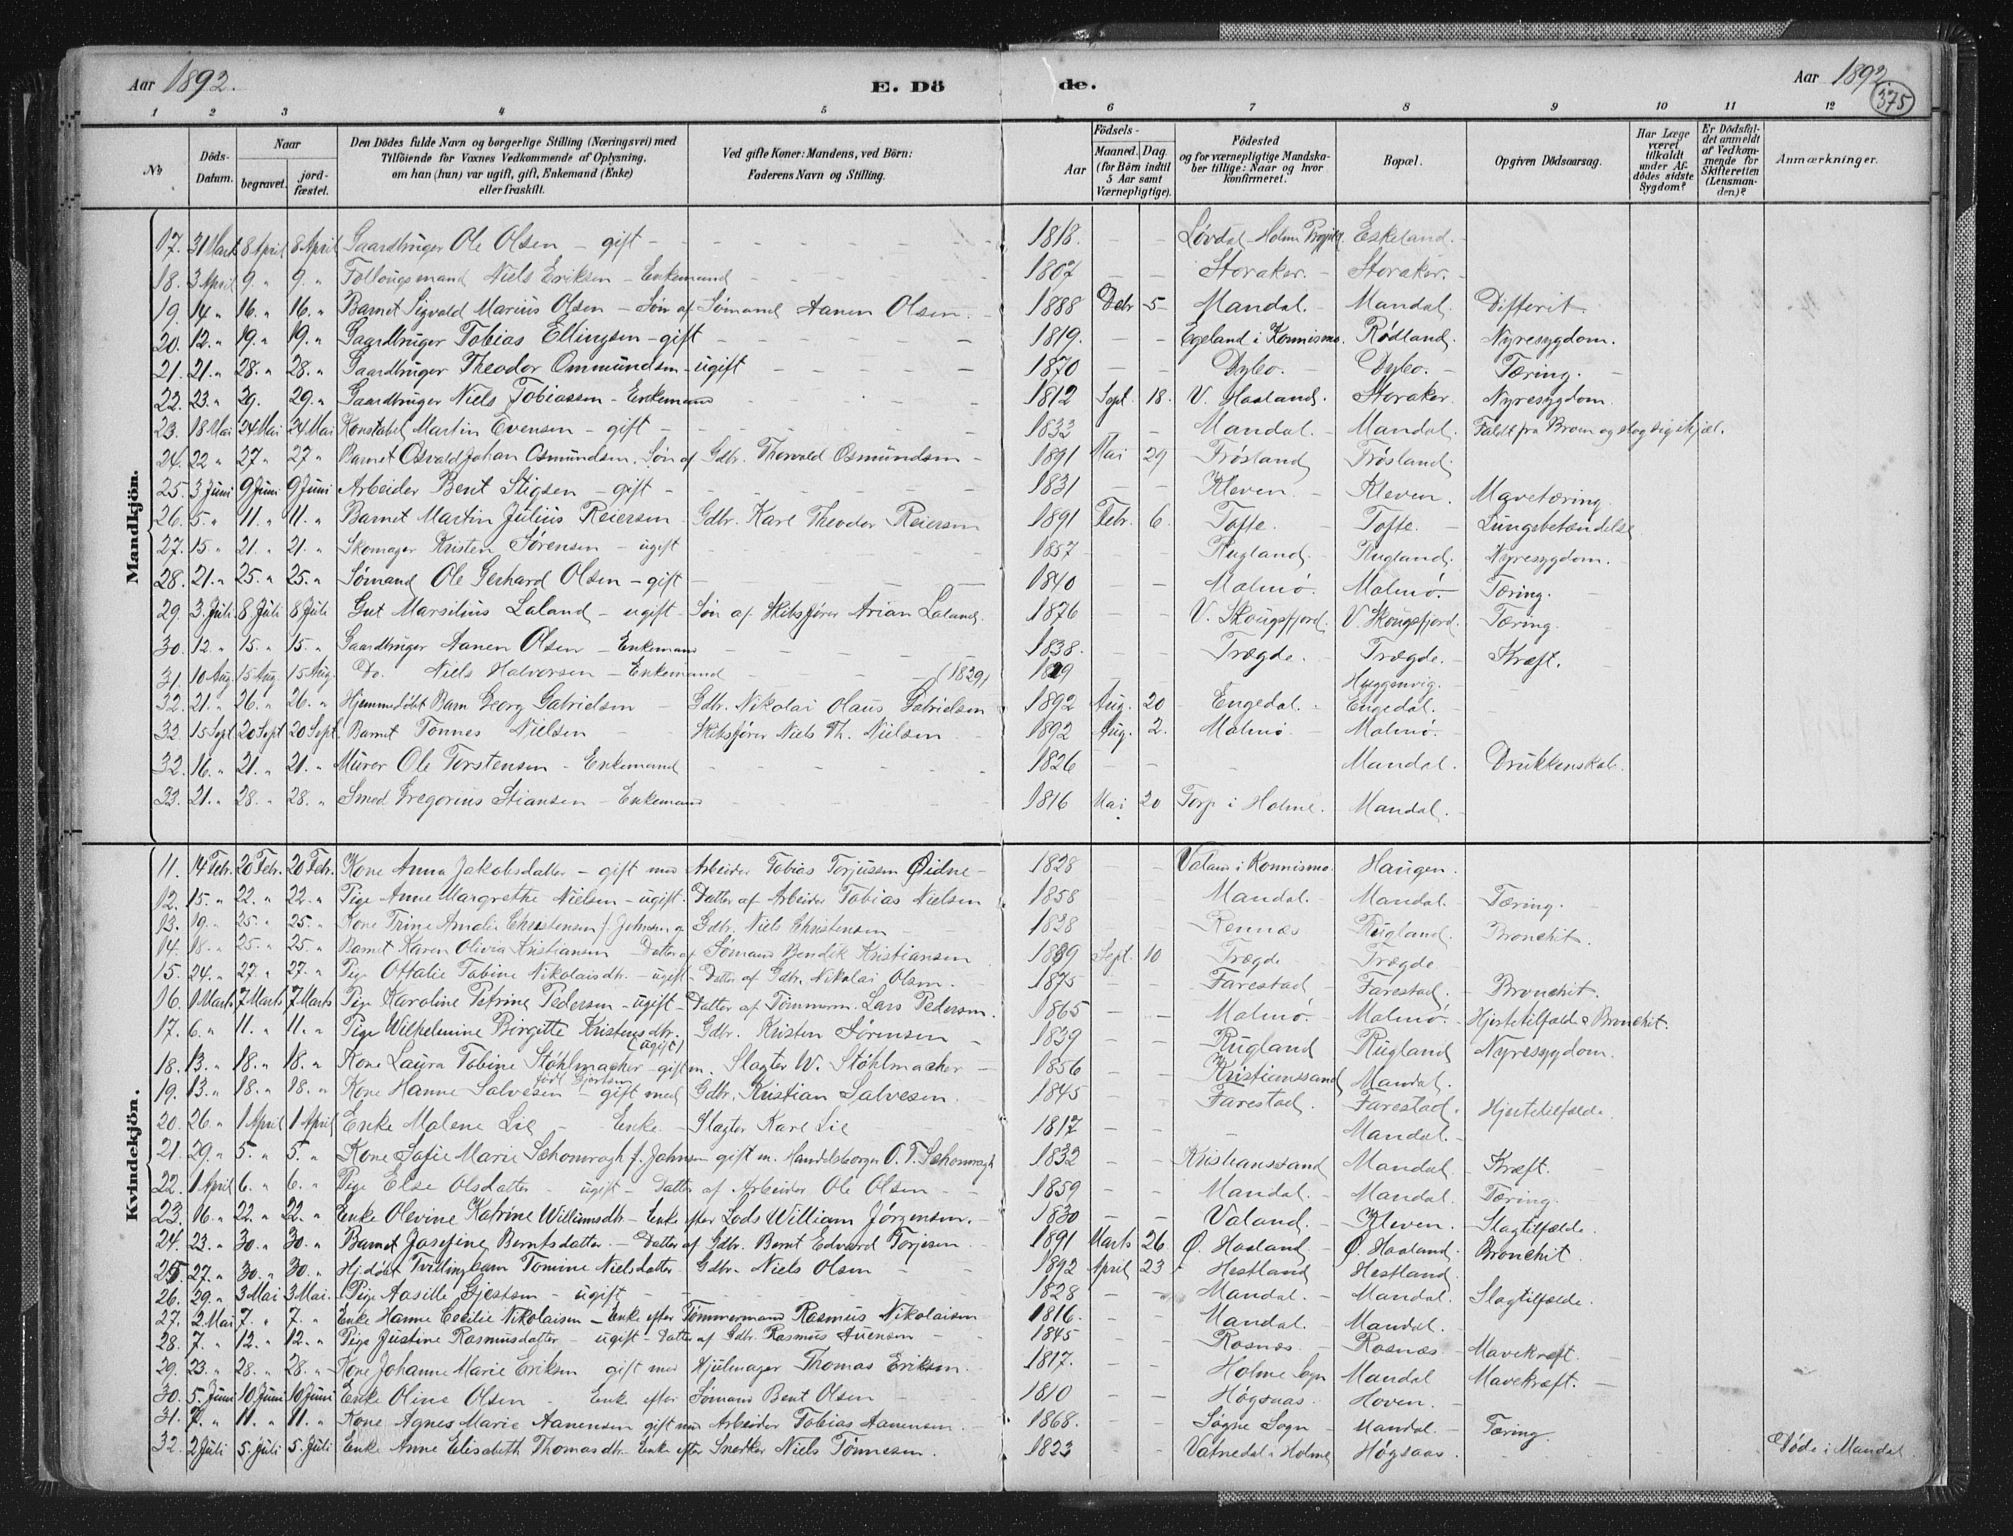 Aar 1892. E. Dö de. Aar 1892
375
1 2 3 4 5 6 7 8 9 10 11 12
No Döds-Datum. Naar begravet. jord-fæstet. Den Dödes fulde Navn og borgerlige Stilling (Næringsvei) med Tilföiende for Voxnes Vedkommende af Oplysning, om han (hun) var ugift, gift, Enkemand (Enke) eller fraskilt. Ved gifte Koner: Mandens, ved Börn: Faderens Navn og Stilling. Födsels- Aar Maaned. Dag. (for Börn indtil 5 Aar samt Værnepligtige). Födested og for værnepligtige Mandskaber tillige: Naar og hvor konfirmeret. Bopæl. Opgiven Dödsaarsag. Har Læge været tilkaldt under Afdödes sidste Sygdom? Er Dödsfaldet anmeldt af Vedkommende for Skifteretten (Lensmanden)? Anmærkninger.
Mandkjön.
17. 31 Marts 8 April 8 April Gaardbruger Ole Olsen - gift - 1818. - - Løvdal Holme Eskeland.
18. 3 April 9 " 9. " Follougsmand Niels Eriksen - Enkemand 1807 - - Storaker. - Storaker. -
19. 14 " 16. " 16. " Barnet Sigvald Marius Olsen - Søn af Sømand Aanen Olsen. 1888 Debr 5 Mandal. - Mandal. Difterit.
20. 12. " 19. " 19. " Gaardbruger Tobias Ellingsen - gift 1819. - - Egeland i Konnismo. Rødland. Nyresygdom.
21. 21. " 28. " 28. " Gaardbruger Theodor Ommundsen - ugift 1870 - - Dybo. - Dybo. - Tæring.
22. 23. " 29. 29. " Gaardbruger Niels Tobiassen - Enkemand 1812 Sept. 18. V. Haaland. Storaker. Nyresygdom.
23. 18 Mai 24 Mai 24 Mai Konstabel Martin Evensen - gift - 1833 - Mandal. - Mandal. Faldt fra Broen og slog sig ihjæl.
24. 22 " 27 " 27 " Barnet Osvald Johan Osmundsen. Søn af Gdbr. Thorvald Osmundsen - 1891 Mai 29 Frøsland Frøsland.
25. 3 Juni 9 Juni 9 Juni Arbeider Bent Stigsen - gift - 1831 - - Kleven - Kleven. Mavetæring.
26. 5. " 11. " 11. " Barnet Martin Julius Reiersen Gdbr. Karl Theodor Reiersen 1891 Febr. 6. Tofte. - Tofte. - Lungebetændelse
27. 15. " 21. " 21. " Skomager Kristen Sørensen - ugift 1857 - - Rugland. Rugland. Nyresygdom.
28. 21. " 25. " 25. " Sømand Ole Gerhard Olsen - gift 1840 - - Malmø. Malmø. Tæring.
29. 3. Juli 8 Juli 8 Juli Gut Marsilius Laland - ugift - Søn af Skibsfører Arian Laland. 1876 - - V. Skougsfjord. V. Skougsfjord. Tæring.
30. 12. " 15. " 15. " Gaardbruger Aanen Olsen - Enkemand 1838. - - Trægde. - Trægde. - Kræft.
31. 10 Aug 15 Aug 15 Aug. Do. Niels Halvorsen - Enkemand (1829) 1829 Huggenvig.
32. 21. " 26. " 26. " Hjemmedøbt Barn Georg Gabrielsen Gdbr. Nikolai Olaus Gabrielsen 1892 Aug. 20 Engedal. Engedal.
32. 15 Sept 20 Sept 20 Sept. Barnet Tønnes Nielsen Skibsfører Niels Th. Nielsen 1892 Aug. 2. Malmø. Malmø.
32. 16. " 21. " 21. " Murer Ole Torstensen - Enkemand 1826 Mandal. Drukkenskab.
33. 21. " 28. " 28. " Smed Gregorius Stiansen - Enkemand 1816 Mai 20 Torp i Holme. Mandal.
Kvindekjön.
11. 14 Febr. 20 Febr. 20 Febr. Kone Anna Jakobsdatter - gift med Arbeider Tobias Torjussen Øidne - 1828 - - i Konnismo. Haugen.
12. 15. " 22. " 22. " Pige Anne Margrethe Nielsen - ugift. Datter af Arbeider Tobias Nielsen 1858 - - Mandal. Mandal. Tæring.
13. 19. " 25. " 25. " Kone Trine Amalie Christensen f. Johnsen g Gdbr. Niels Christensen 1828 - - Rennæs Rugland. Bronchit.
14. 18. " 25. " 25. " Barnet Karen Olivia Kristiansen Datter af Sømand Bendik Kristiansen 1889 Sept. 10 Trægde Trægde
15. 24. " 27. " 27. " Pige Ottalie Tabine Nikolaisdtr. - ugift - Datter af Gdbr. Nikolai Olsen. 1875 - - Farestad Farestad. Bronchit.
16. 1 Marts 7 Marts 7 Marts Pige Karoline Petrine Pedersen - ugift - Datter af Tømmerm. Lars Pedersen. 1865 - - Malmø. Malmø. - Hjertetilfælde & Bronchit.
17. 6. " 11. " 11. " Pige Wilhelmine Birgitte Kristensdtr. (ugift) Gdbr. Kristen Sørensen 1839 - - Rugland Rugland Nyresygdom.
18. 13. " 18. " 18. " Kone Laura Tobine Støhlmacher - gift m. Slagter W. Støhlmacher - 1856 - - Kristianssand Mandal.
19. 13. " 18. " 18. " Kone Hanne Salvesen - gift med Gdbr. Kristian Salvesen 1845 - - Farestad. Farestad. Hjertetilfælde.
20. 26. " 1 April 1 April Enke Malene Lie - Enke. - Slagter Karl Lie 1817 - - Mandal.
21. 29. " 5. " 5. " Kone Sofie Marie Schomragh f. Johnsen - gift m. Handelsborger O. T. Schomragh 1832 - - Kristianssand Mandal. Kræft.
22. 1 April 6. " 6. " Pige Else Olsdatter - ugift - Datter af Arbeider Ole Olsen - 1859 - - Mandal. Mandal. Tæring.
23. 16. " 22. " 22. " Enke Olevine Katrine Willumsdtr - Enke efter Lods William Jørgensen. 1830 - - Valand. - Kleven. - Slagtilfælde.
24. 23. " 30. " 30. " Barnet Josefine Berntsdatter. - Datter af Gdbr. Bernt Edvard Torjesen 1891 Marts 26 Ø. Haaland Ø. Haaland. Bronchit
25. 27. " 30. " 30. " Hj.døbt Tvillingbarn Tomine Nielsdatter. Gdbr. Niels Olsen 1892 April 23 Hestland Hestland.
26. 29. " 3 Mai 3 Mai. Pige Aasille Gjertsen - ugift 1828 - - Mandal. Mandal. Slagtilfælde.
27. 2 Mai 7. " 7. " Enke Hanne Cecilie Nikolaisen - Enke efter Tømmermand Rasmus Nikolaisen 1816. - - Mandal. - Mandal.
28. 7. " 12. " 12. " Pige Justine Rasmusdatter - ugift - Datter af Gdbr. Rasmus 1845 - - Rosnæs. Rosnæs - Mavekræft.
29. 23. " 28. " 28. " Kone Johanne Marie Eriksen gift med Hjulmager Thomas Eriksen. 1817. - - Holme Sogn Mandal Mavekræft.
30. 5. Juni 10 Juni 10 Juni Enke Oline Olsen Enke efter Sømand Bent Olsen 1810 - - Høgsaas Hoven.
31. 7. " 11. " 11. " Kone Agnes Marie Aanensen gift med Arbeider Tobias Aanensen. 1868. - - Søgne Sogn Mandal. Tæring.
32. 2 Juli 5. Juli 5. Juli Enke Anne Elisabeth Thomasdtr. Enke efter Snedker Niels Tønnesen. 1823 - - Vatnedal i Holme Høgsaas Døde i Mandal